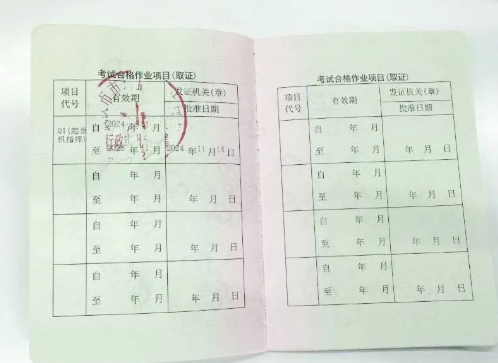 考试合格作业项目(取证)
项目代号 有效期 发证机关(章)
批准日期
Q1(起重机指挥) 自 2024 年 月
至 2028 年 月 2024 年 11 月 14 日
自 年 月
至 年 月 年 月 日
自 年 月
至 年 月 年 月 日
自 年 月
至 年 月 年 月 日
考试合格作业项目(取证)
项目代号 有效期 发证机关(章)
批准日期
自 年 月
至 年 月 年 月 日
自 年 月
至 年 月 年 月 日
自 年 月
至 年 月 年 月 日
自 年 月
至 年 月 年 月 日